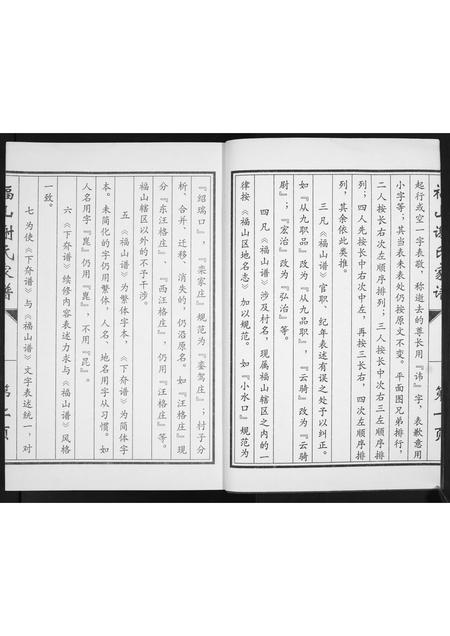 起行或空一字表敬，称逝去的尊长用『讳』字，表歉意用
小字等；其当表未表处仍按原文不变。平面图兄弟排行，
二人按长右次左顺序排列；三人按长中次右三左顺序排
列；四人先按长中右次中左，再按三长右，四次左顺序排
列，其余依此类推。
三凡《福山谱》官职、纪年表述有误之处予以纠正。
如『从九职品』改为『从九品职』，『云骑』改为『云骑
尉』；『宏治』改为『弘治』等。
四凡《福山谱》涉及村名，现属福山辖区之内的一
律按《福山区地名志》加以规范。如『小水口』规范为
『绍瑞口』，『栾家庄』规范为『銮驾庄』；村子分
析、合并、迁移、消失的，仍沿原名。如『汪格庄』现
分『东汪格庄』、『西汪格庄』，仍用『汪格庄』等。
福山辖区以外的不予干涉。
五《福山谱》为繁体字本，《下夼谱》为简体字
本。未简化的字仍用繁体，人名、地名用字从习惯。如
人名用字『崑』仍用『崑』，不用『昆』。
六《下夼谱》续修内容表述力求与《福山谱》风格
一致。
七为使《下夼谱》与《福山谱》文字表述统一，对
福山谢氏家谱